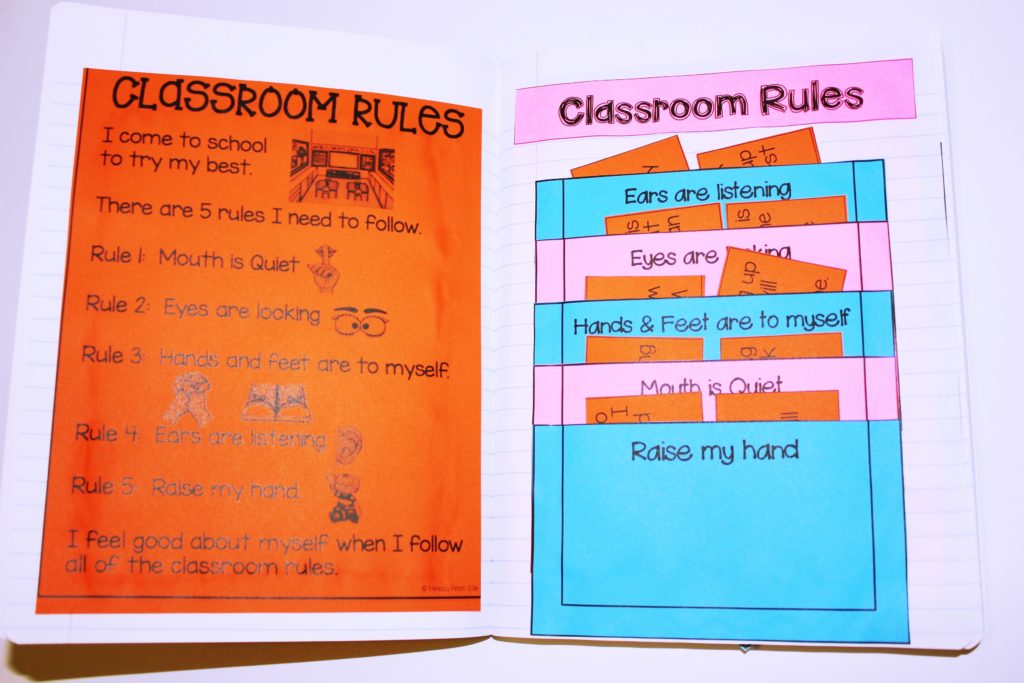 CLASSROOM RULES
I come to school
to try my best.
There are 5 rules I need to follow.
Rule 1: Mouth is Quiet
Rule 2: Eyes are looking
Rule 3: Hands and feet are to myself.
Rule 4: Ears are listening
Rule 5: Raise my hand.
I feel good about myself when I follow
all of the classroom rules.
Classroom Rules
Ears are listening
Eyes are
Hands & Feet are to myself
Mouth is Quiet
Raise my hand